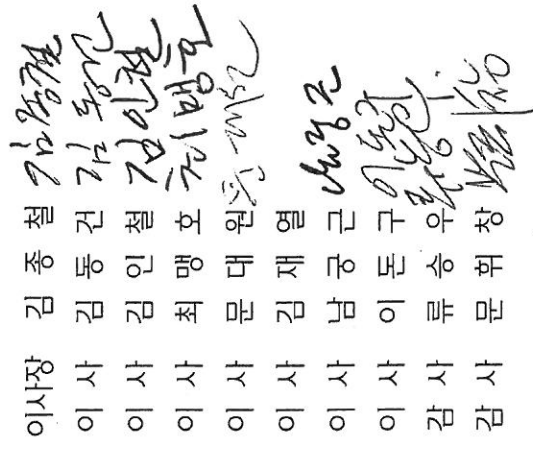 이사장 김 종 철 김종철
이 사 김 동 건 김동건
이 사 김 인 철 김인철
이 사 최 맹 호 최맹호
이 사 문 대 원
이 사 김 재 열
이 사 남 궁 근
이 사 이 돈 구 이돈구
감 사 류 승 우
감 사 문 휘 창